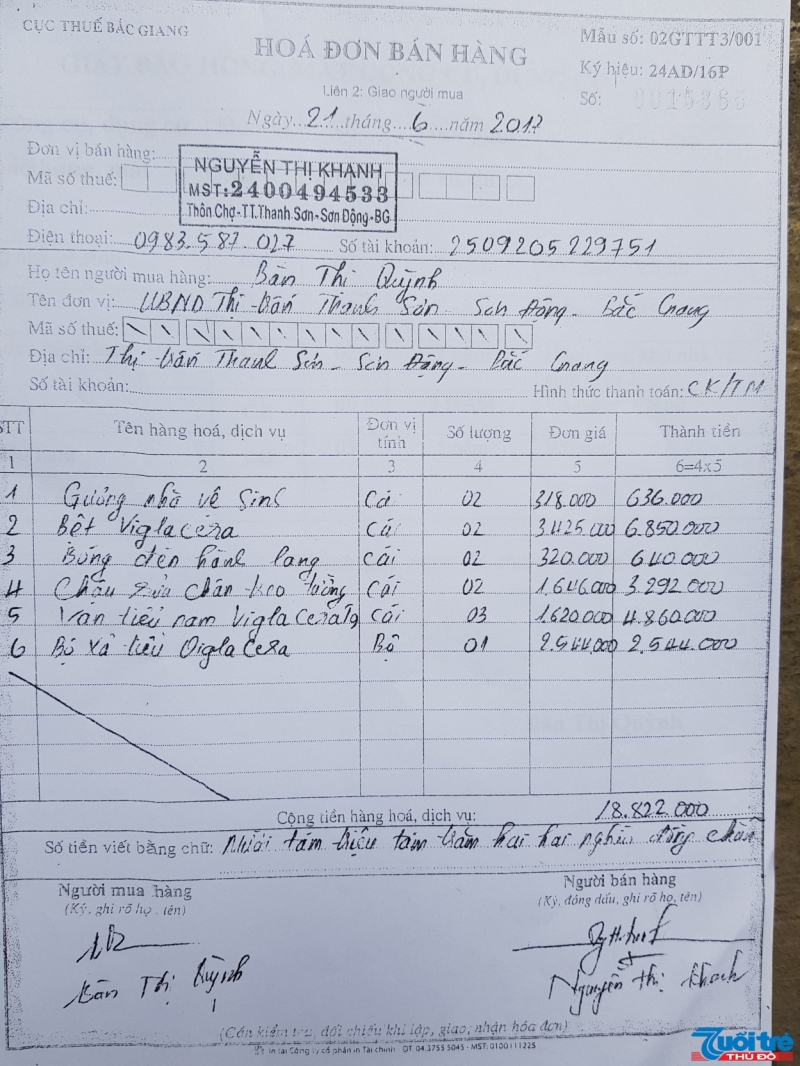 CỤC THUẾ BẮC GIANG
HOÁ ĐƠN BÁN HÀNG
Mẫu số: 02GTTT3/001
Ký hiệu: 24AD/16P
Liên 2: Giao người mua
Số: 0015365
Ngày 21 tháng 6 năm 2017
Đơn vị bán hàng: NGUYỄN THỊ KHANH
Mã số thuế: MST: 2400494533
Địa chỉ: Thôn Chợ-TT.Thanh Sơn-Sơn Động-BG
Điện thoại: 0983.587.027 Số tài khoản: 2509205229751
Họ tên người mua hàng: Bàn Thị Quỳnh
Tên đơn vị: UBND Thị trấn Thanh Sơn - Sơn Động - Bắc Giang
Mã số thuế:
Địa chỉ: Thị trấn Thanh Sơn - Sơn Động - Bắc Giang
Số tài khoản: Hình thức thanh toán: CK/TM
STT Tên hàng hoá, dịch vụ Đơn vị tính Số lượng Đơn giá Thành tiền
1 2 3 4 5 6=4x5
1 Gương nhà vệ sinh Cái 02 318.000 636.000
2 Bệt Viglacera Cái 02 3.425.000 6.850.000
3 Bóng đèn hành lang Cái 02 320.000 640.000
4 Chậu rửa chân treo tường Cái 02 1.646.000 3.292.000
5 Van tiểu nam Viglacera Cái 03 1.620.000 4.860.000
6 Bộ xả tiểu Viglacera Bộ 01 2.544.000 2.544.000
Cộng tiền hàng hoá, dịch vụ: 18.822.000
Số tiền viết bằng chữ: Mười tám triệu tám trăm hai hai nghìn đồng chẵn
Người mua hàng Người bán hàng
(Ký, ghi rõ họ, tên) (Ký, đóng dấu, ghi rõ họ, tên)
Bàn Thị Quỳnh Nguyễn Thị Khanh
(Cần kiểm tra, đối chiếu khi lập, giao, nhận hóa đơn)
In tại Công ty cổ phần in Tài chính ĐT: 04.3755 5045 - MST: 0100111225
Tuổi trẻ
THỦ ĐÔ